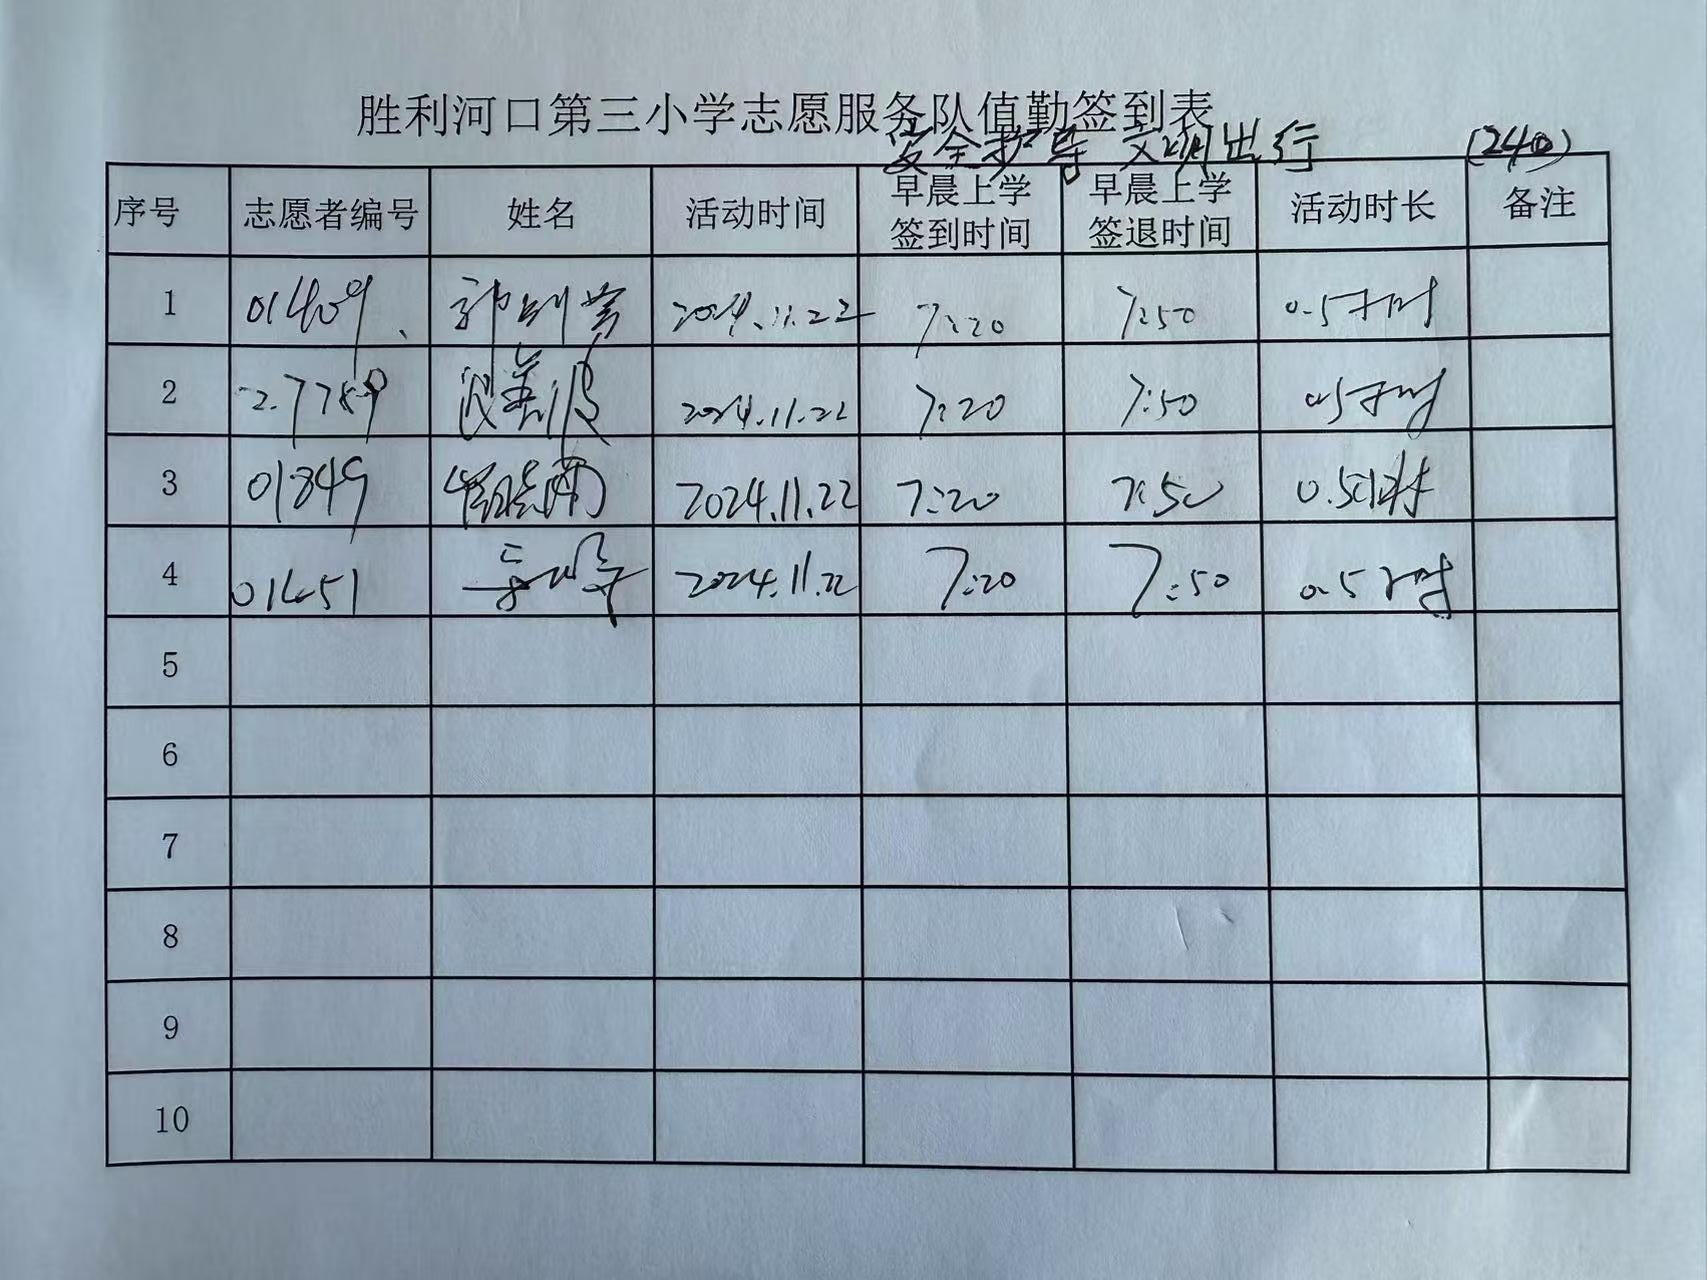 胜利河口第三小学志愿服务队值勤签到表
安全护导 文明出行 (240)
序号 志愿者编号 姓名 活动时间 早晨上学签到时间 早晨上学签退时间 活动时长 备注
1 01409 2024.11.22 7:20 7:50 0.5小时
2 2024.11.22 7:20 7:50 0.5小时
3 01849 2024.11.22 7:20 7:50 0.5小时
4 2024.11.22 7:20 7:50 0.5小时
5
6
7
8
9
10